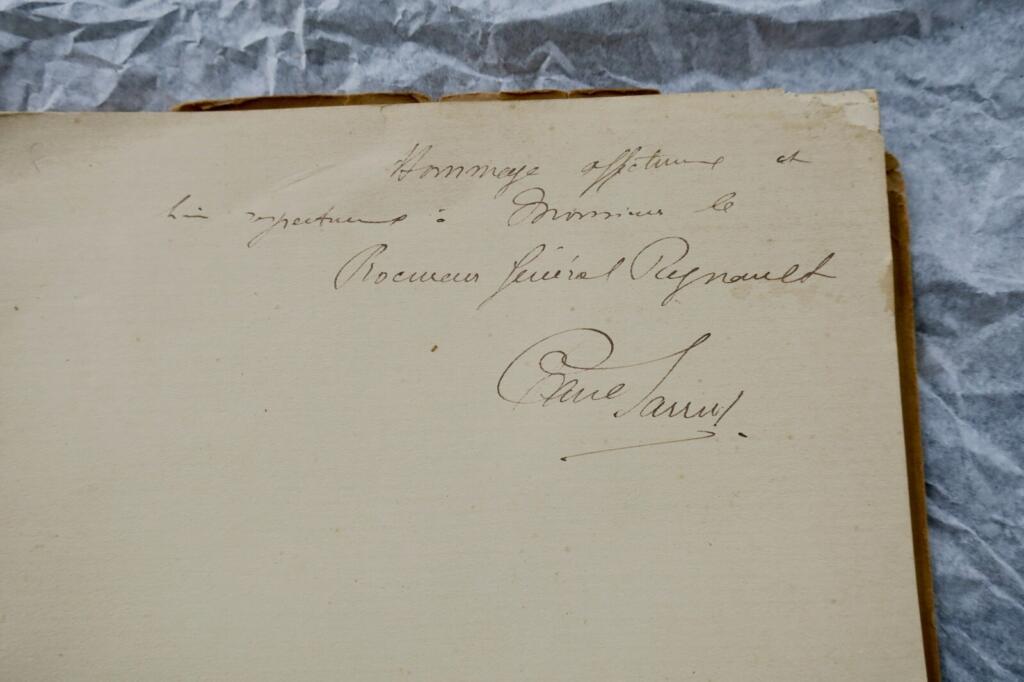 Hommage affectueux et
bien respectueux à Monsieur le
Procureur Général Regnault
Paul Sarrut